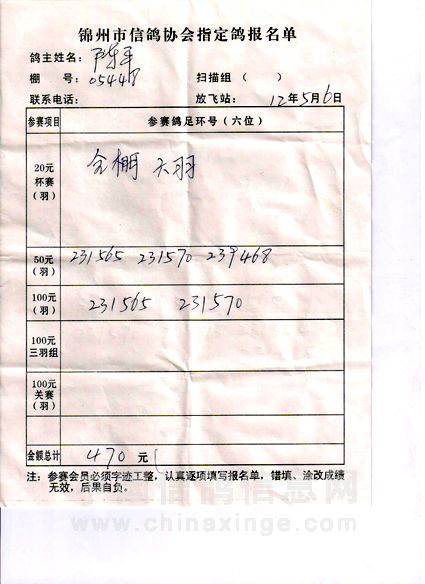 锦州市信鸽协会指定鸽报名单
鸽主姓名：陈军
棚 号：05448 扫描组（ ）
联系电话： 放飞站： 12年5月6日
参赛项目 参赛鸽足环号（六位）
20元
杯赛
（羽）
全棚 六羽
50元
（羽）
231565 231570 239468
100元
（羽）
231565 231570
100元
三羽组
100元
关赛
（羽）
金额总计 470 元
注：参赛会员必须字迹工整，认真逐项填写报名单，错填、涂改成绩
无效，后果自负。
中国信鸽信息网
www.chinaxinge.com